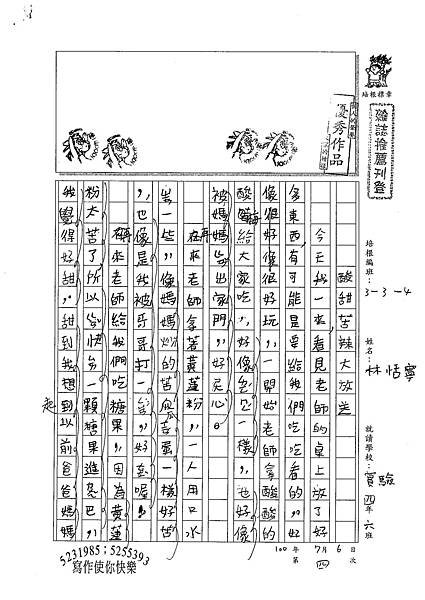 培根標章
雜誌推薦刊登
優秀作品
培根編班：3-3-4
姓名：林恬寧
就讀學校：實驗 四年六班
100年 7月 6日
第 四 次
酸甜苦辣大放送
今天我一來看見老師的桌上放了好
多東西，有可能是要給我們吃看的，好
像很好像很好玩，一開始老師拿酸酸的
酸梅給大家吃，好像
被媽媽出家門，好災心
在來老師拿著黃蓮粉，一人用口水
一些，像媽媽的苦瓜苦蛋一樣好苦
，也像是我被哥哥打一
在來老師給我們吃糖果，因為黃蓮
粉太苦了所以快分一顆糖果進嘴巴，
我覺得好甜，甜到我想到以前爸爸媽媽
起
5231985；5255393
寫作使你快樂